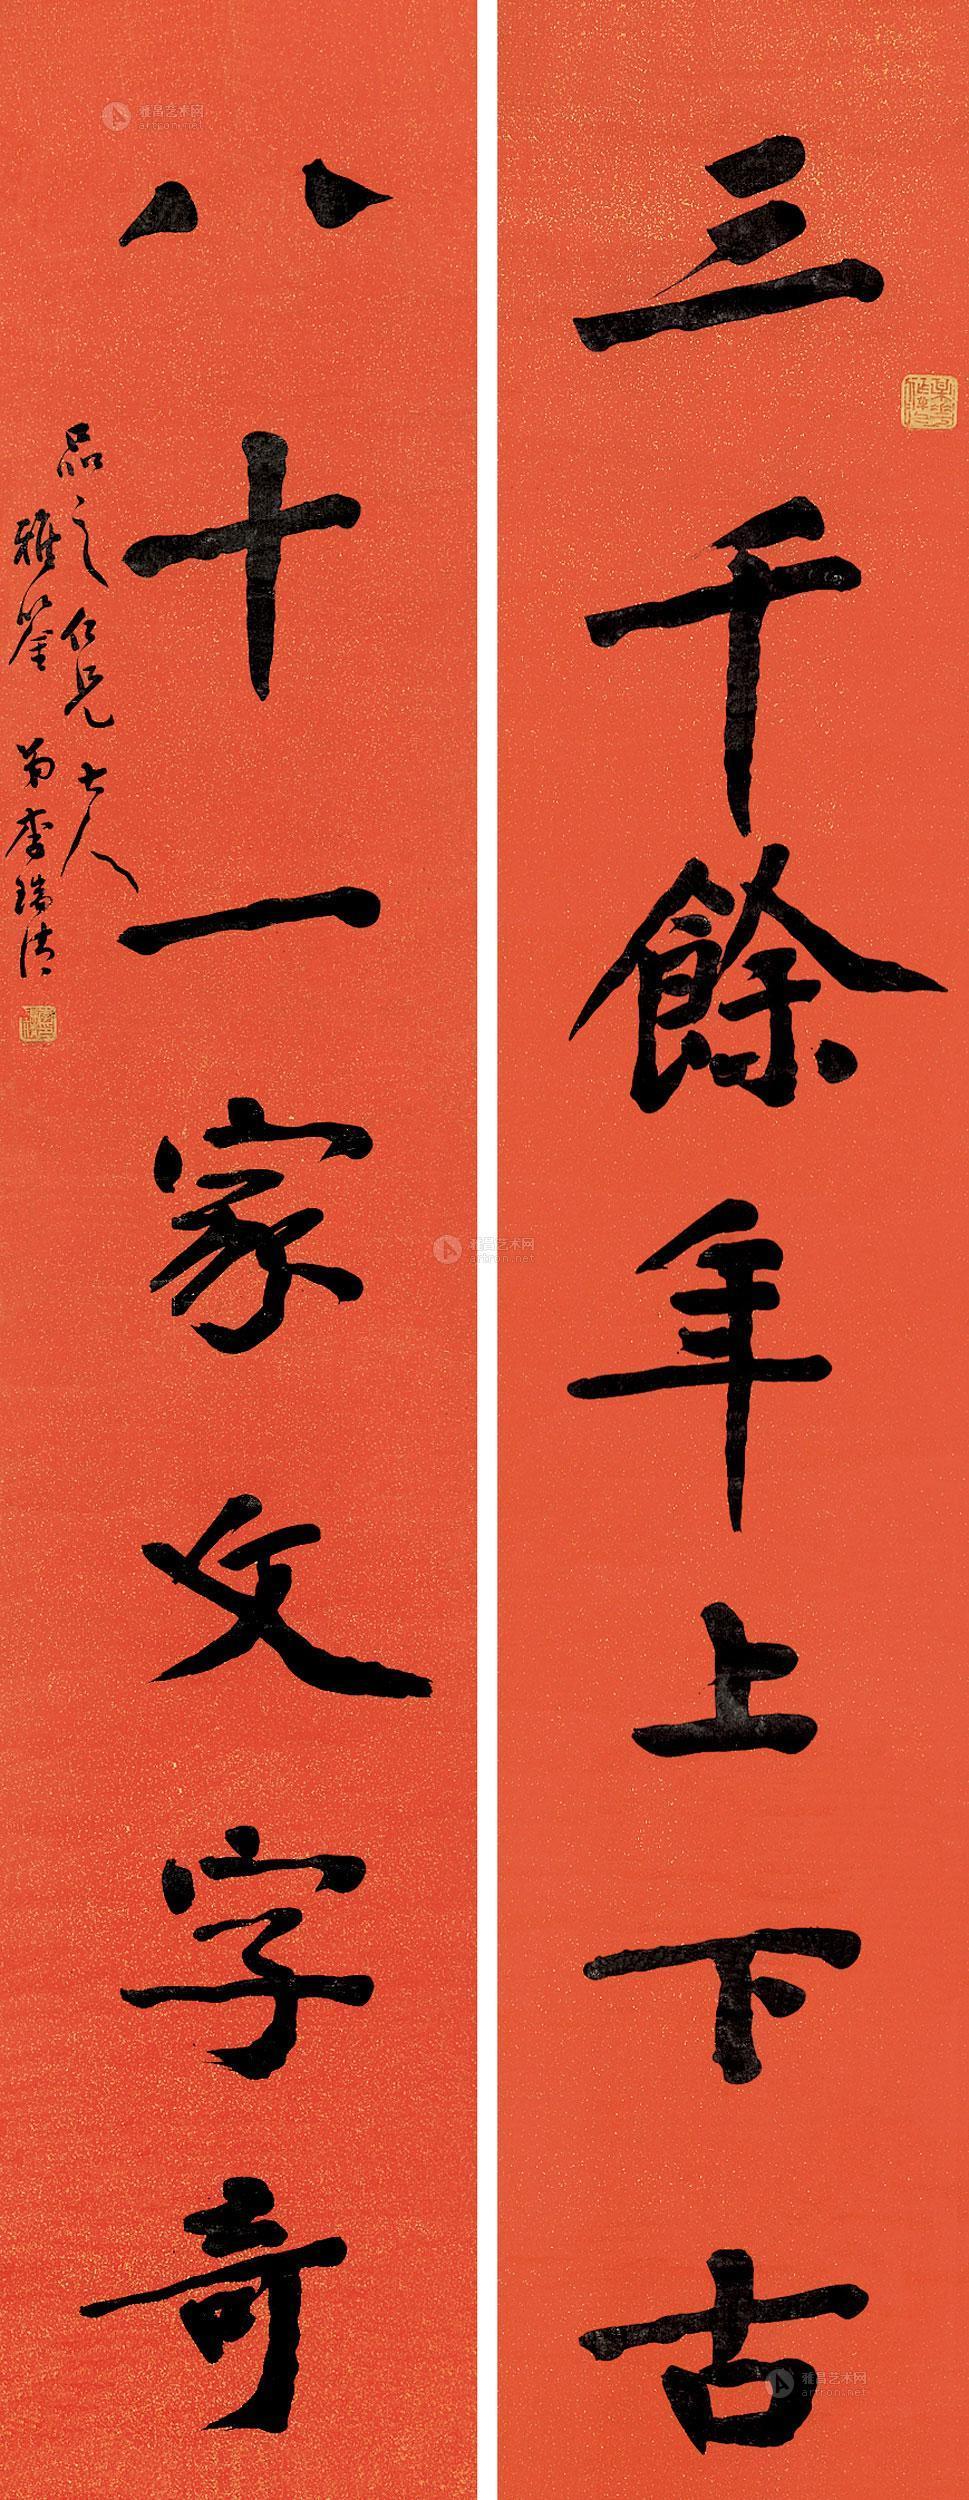 三千餘年上下古
八十一家文字奇
品之仁兄大人
雅鉴 弟李瑞清
雅昌艺术网
artron.net
雅昌艺术网
artron.net
雅昌艺术网
artron.net